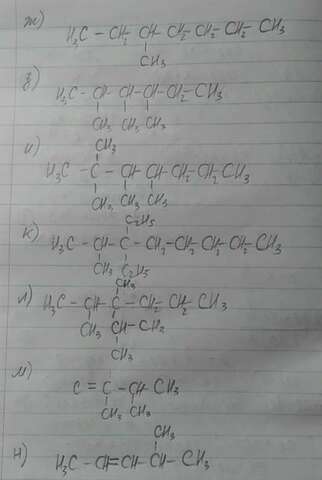 ж) H₃C – CH₂ – CH – CH₂ – CH₂ – CH₂ – CH₃
CH₃
з) H₃C – CH – CH – CH – CH₂ – CH₃
CH₃ CH₃ CH₃
CH₃
и) H₃C – C – CH – CH – CH₂ – CH₂ – CH₃
CH₃ CH₃ CH₃
C₂H₅
к) H₃C – CH – C – CH₂ – CH₂ – CH₂ – CH₂ – CH₃
CH₃ C₂H₅
CH₃
л) H₃C – CH – C – CH₂ – CH₂ – CH₃
CH₃ CH – CH₂
CH₃
м)
C = C – CH – CH₃
CH₃ CH₃
CH₃
н) H₃C – CH = CH – CH – CH₃